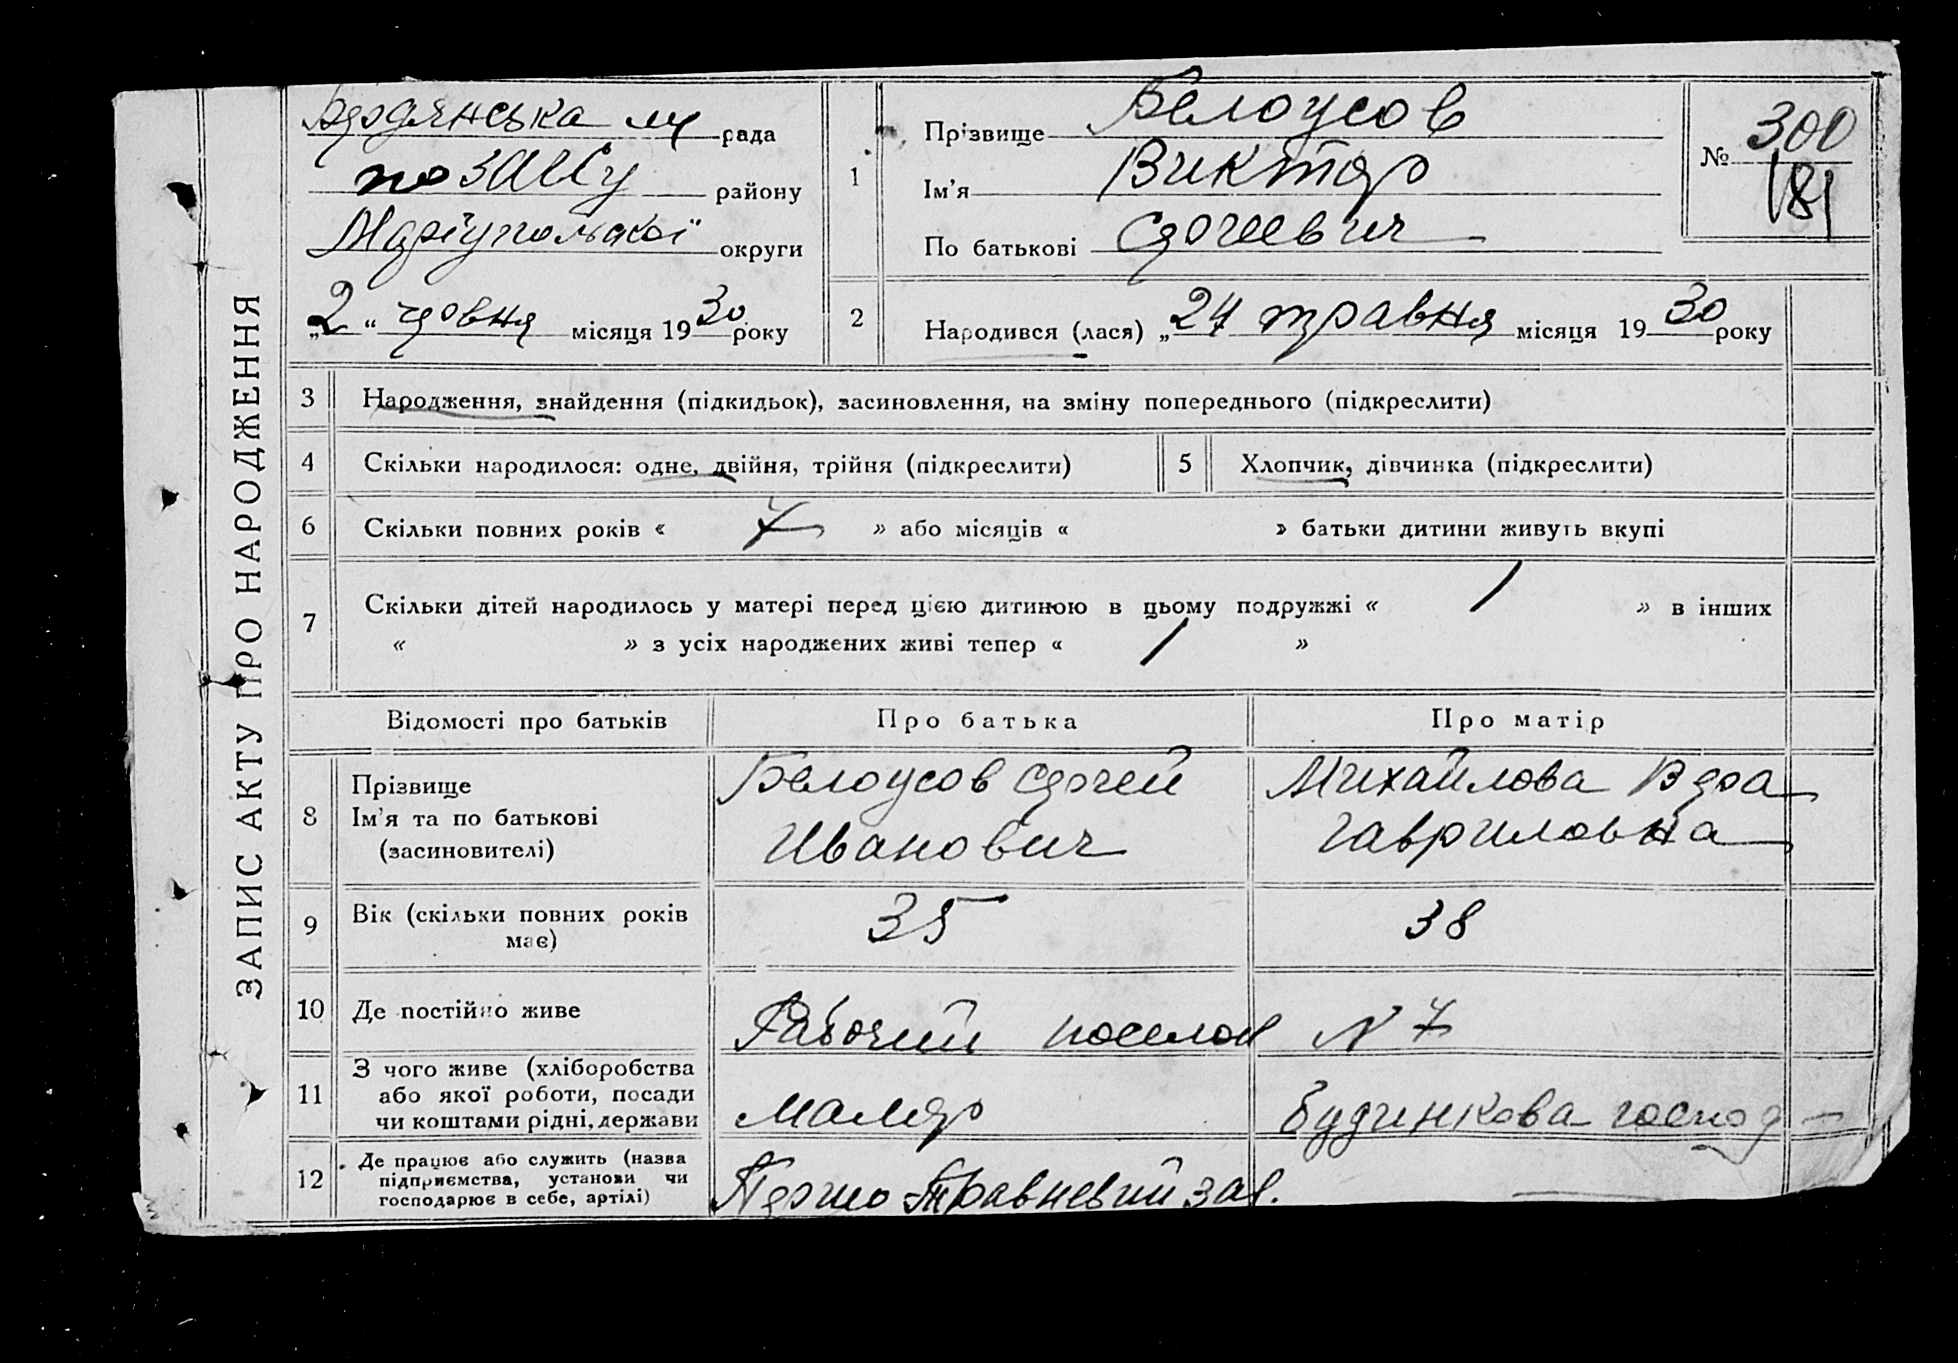 ЗАПИС АКТУ ПРО НАРОДЖЕННЯ
Бердянська м рада
по ЗАГСу району
Маріупольської округи
„2“ червня місяця 1930 року
1
Прізвище Белоусов
Ім’я Виктор
По батькові Сергеевич
№ 300
181
2
Народився (лася) „24 травня місяця 1930 року
3 Народження, знайдення (підкидьок), засиновлення, на зміну попереднього (підкреслити)
4 Скільки народилося: одне, двійня, трійня (підкреслити)
5 Хлопчик, дівчинка (підкреслити)
6 Скільки повних років « 7 » або місяців « » батьки дитини живуть вкупі
7 Скільки дітей народилось у матері перед цією дитиною в цьому подружжі « 1 » в інших
« » з усіх народжених живі тепер « 1 »
Відомості про батьків Про батька Про матір
8 Прізвище
Ім’я та по батькові
(засиновителі)
Белоусов Сергей
Иванович
Михайлова Вера
Гавриловна
9 Вік (скільки повних років
має)
35
38
10 Де постійно живе Рабочий поселок N 7
11 З чого живе (хліборобства
або якої роботи, посади
чи коштами рідні, держави
Маляр
будинкова господ
12 Де працює або служить (назва
підприємства, установи чи
господарює в себе, артілі)
Першо Травневий зав.